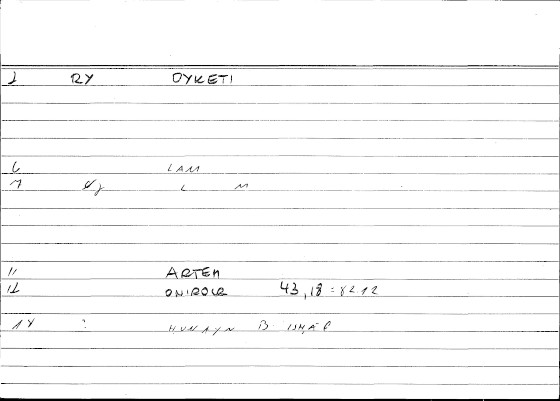 2 RY OYKETI
6 LAM
7 L M
11 ARTEM
12 ONIROCR 43,18 = 82.12
14 ? HUNAYN B. ISHĀQ